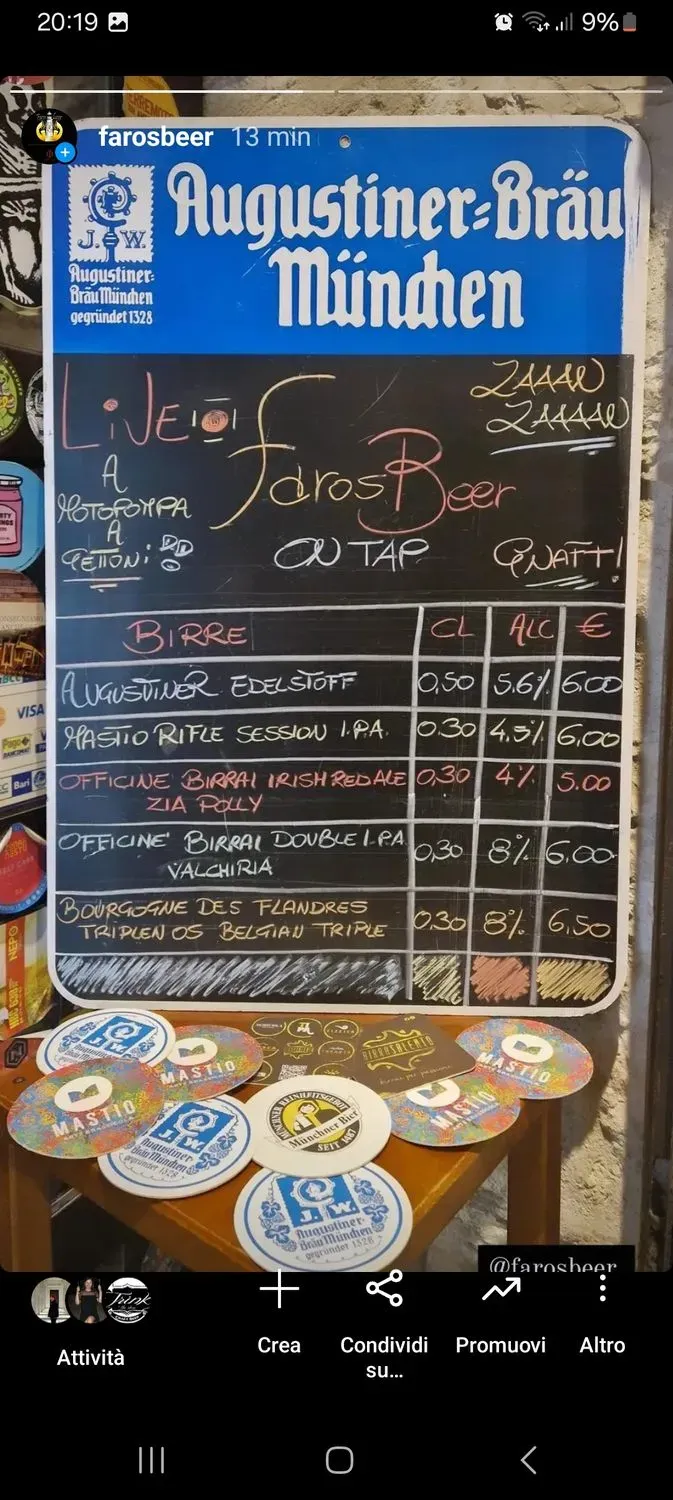 20:19
9%
farosbeer 13 min
Augustiner-Bräu
München
J. W.
Augustiner-
Bräu München
gegründet 1328
LiVE
A
MOTOPOMPA
A
GETTONi
FarosBeer
ON TAP
ZAAAN
ZAAAAN
GNATT!
BIRRE CL ALC €
AUGUSTINER EDELSTOFF 0,50 5.6% 6.00
MASTIO RIFLE SESSION I.P.A. 0.30 4.5% 6,00
OFFICINE BIRRAI IRISH RED ALE 0,30 4% 5.00
ZIA POLLY
OFFICINE BIRRAI DOUBLE I.P.A 0,30 8% 6,00
VALCHIRIA
BOURGOGNE DES FLANDRES
TRIPLEN OS BELGIAN TRIPLE 0.30 8% 6,50
VISA
Pago
Bari
MASTIO
MASTIO
MASTIO
MASTIO
BIRRASALENTO
Augustiner-
Bräu München
gegründet 1328
MÜNCHNER REINHEITSGEBOT
Münchner Bier
SEIT 1487
J. W.
Augustiner-
Bräu München
gegründet 1328
@farosbeer
Trink
Attività
Crea
Condividi
su...
Promuovi
Altro